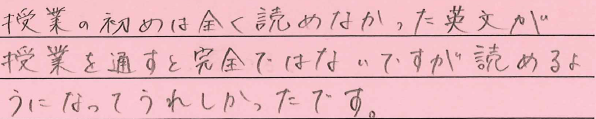 授業の初めは全く読めなかった英文が
授業を通すと完全ではないですが読めるよ
うになってうれしかったです。